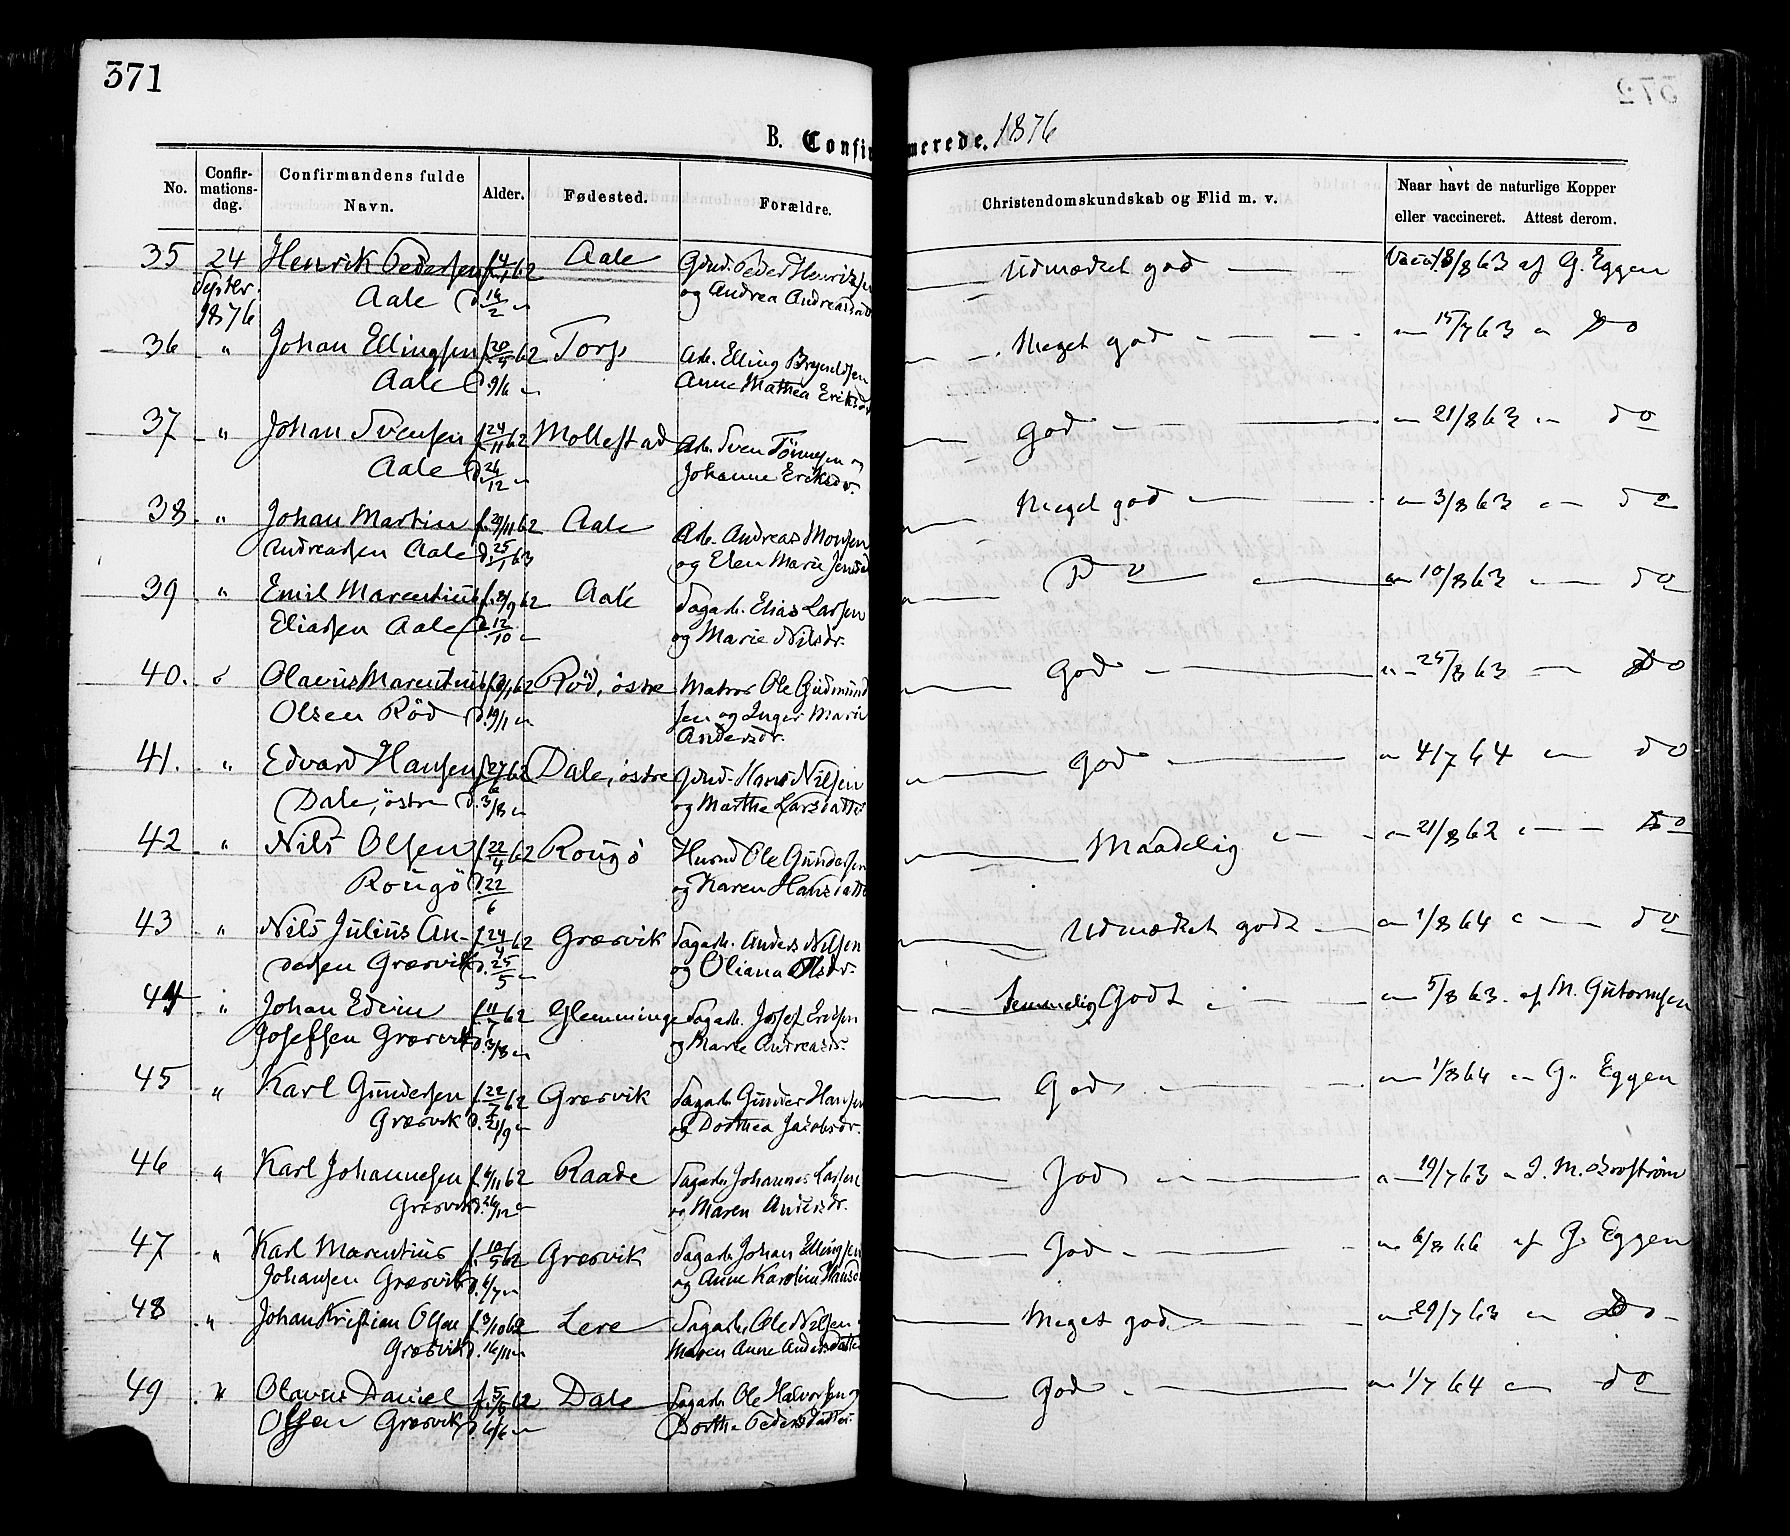 371
B. Confirmerede. 1876
No.
Confirmationsdag.
Confirmandens fulde Navn.
Alder.
Fødested.
Forældre.
Christendomskundskab og Flid m. v.
Naar havt de naturlige Kopper eller vaccineret. Attest derom.
35 24 Henrik Pedersen f. 62 Aale Gbrd. Peder Henriksen Udmærket god Vacc. 18/8 63 af G. Eggen
Septbr. Aale d. 16/2 og Andrea Andreasd
1876
36 " Johan Ellingsen f. 20/4 62 Torp Arb. Elling Bryndelsen Meget god 15/7 63 Do
Aale d. 9/6 Anne Mathea Eriksdr
37 " Johan Svensen f. 24/11 62 Mollestad Arb. Sven Tönnesen og God 21/8 63 do
Aale d. 26/12 Johanne Eriksdr.
38 " Johan Martin f. 29/11 62 Aale Arb. Andreas Monsen Meget god 3/8 63 do
Andreasen Aale d. 25/1 63 og Elen Marie Jensd
39 " Emil Marentius f. 8/9 62 Aale Sagarb. Elias Larsen Do 10/8 63 do
Eliasen Aale d. 12/10 og Marie Nilsdr.
40. Olavus Marentius 62 Röd, östre Matros Ole Gudmund God 25/8 63 Do
Olsen Röd d. 19/1 sen og Inger Marie
Andersdr.
41. " Edvard Hansen f. 27/6 62 Dale, östre Gbrd. Hans Nilsen God 4/7 64 do
Dale, östre d. 3/8 og Marthe Larsdatte
42 " Nils Olsen f. 22/4 62 Rougö Husmd Ole Gundersen Maadelig 21/8 62 do
Rougö d. 22/6 og Karen Hansdatte
43 " Nils Julius An- f. 24/4 62 Græsvik Sagarb. Anders Nilsen Udmærket godt 1/8 64 do
dersen Græsvik d. 25/5 og Oliana Olsdr.
44 " Johan Edvin f. 11/7 62 Glemminge Sagarb. Josef Eriksen Temmelig Godt 5/8 63 af M. Gutormsen
Josefsen Græsvik d. 3/8 og Marie Andreasdr.
45 " Karl Gundersen f. 22/7 62 Græsvik Sagarb. Gunder Hansen God 1/8 64 G. Eggen
Græsvik d. 21/9 og Dorthea Jacobsdr.
46 " Karl Johannesen f. 6/11 62 Raade Sagarb. Johannes Larsen God 19/7 63 J. M. Brostrøm
Græsvik d. 26/12 og Maren Andersdr.
47 " Karl Marentius f. 10/5 62 Græsvik Sagarb. Johan Ellingsen God 6/8 66 af G. Eggen
Johansen Græsvik d. 6/7 og Anne Karoline Hansd
48 " Johan Kristian Olsen f. 3/10 62 Lere Sagarb. Ole Nilsen Meget god 29/7 63 Do
Græsvik d. 16/11 Maren Anne Andersdatte
49 " Olaves Daniel f. 5/5 62 Dale Sagarb. Ole Halvorsen og God 1/7 64 do
Olsen Græsvik d. 6/6 Dorthe Pedersdatter